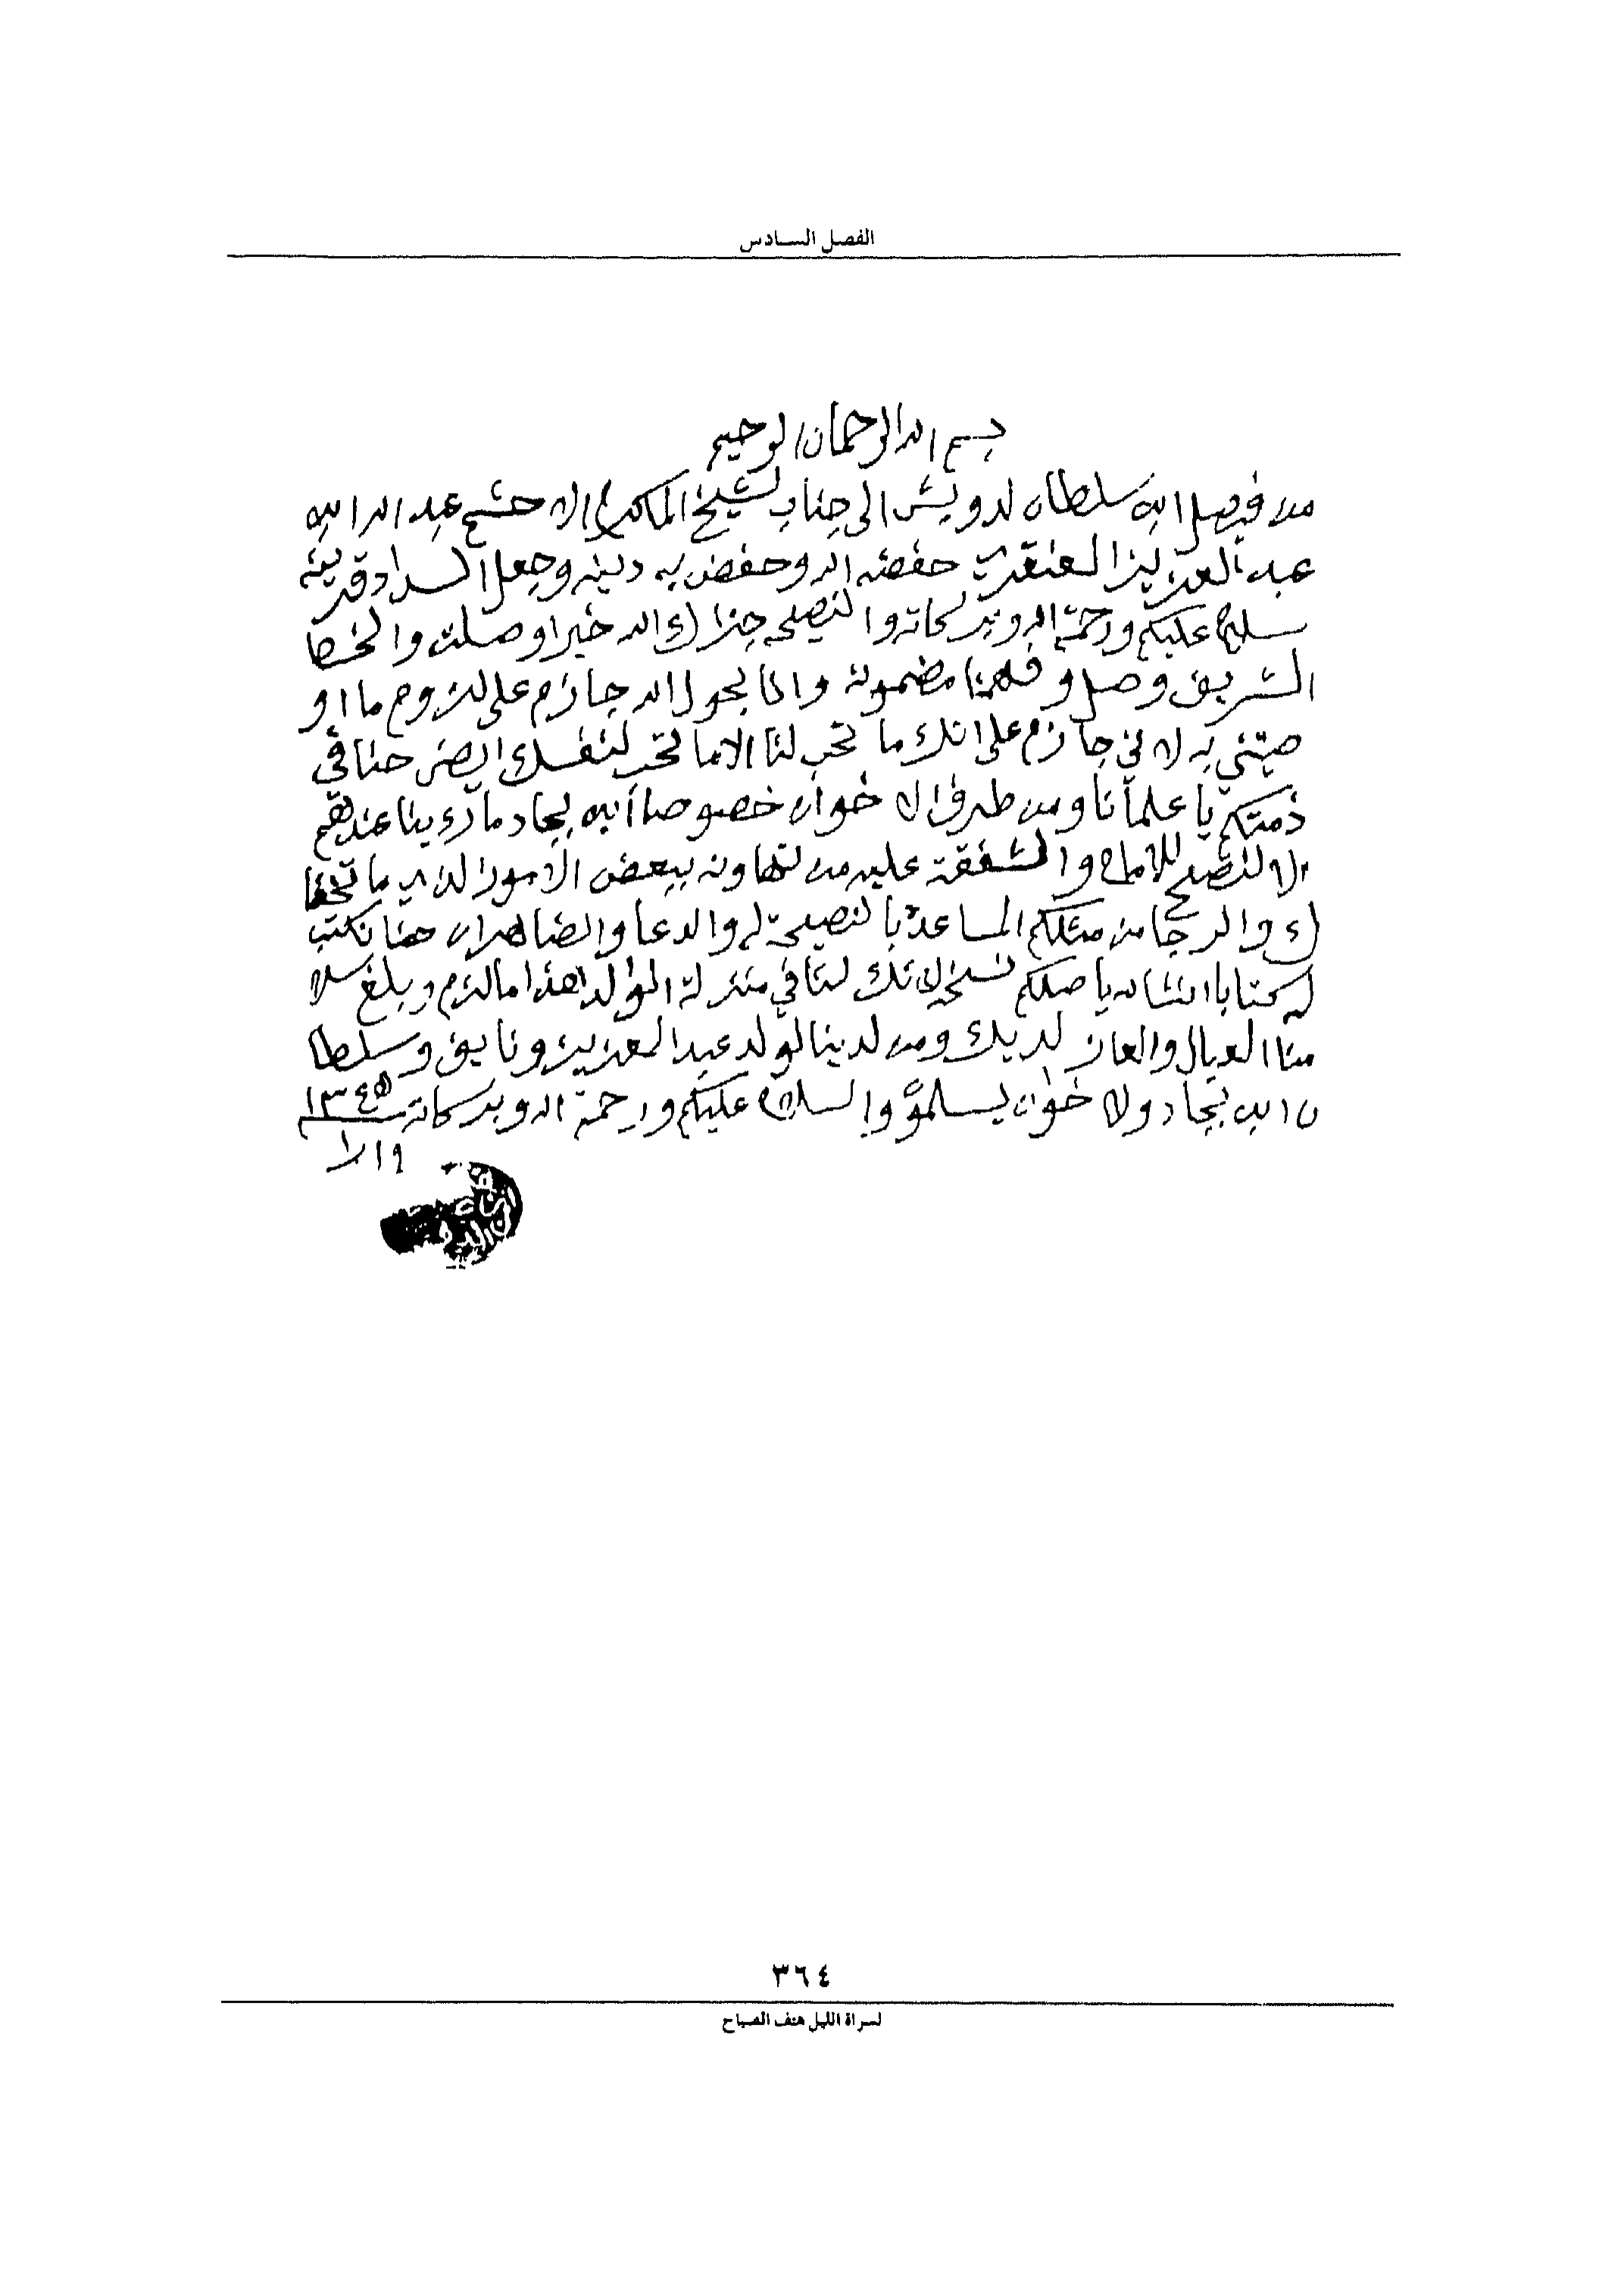 الفصل السادس
بسم الله الرحمان الرحيم
من فيصل ابن سلطان لدويش الى جناب لشيخ المكرم الاحشم عبد الله ابن
عبد العزيز العنقري حفضه الله وحفض به دينه وجعل السداد قرينه
سلام عليكم ورحمة الله وبركاته والنصيحه جزاك الله خيرا وصلت والخط
الشريف وصل وفهمنا مضمونه وانا بحول الله جازم على لزوم ما او
صيتني به لاني جازم على انك ما تحب لنا الا ما تحب لنفسك ايضن حنا في
ذمتكم يا علمآنا ومن طرف الاخوان خصوصا ابن بجاد ما رءينا عندهم
الا لنصح للامام والشفقة عليه من لتهاونه ببعض الامور الذي ما تخفا
ك والرجا من مثلكم المساعدة بالنصيحة له والدعا والضاهر ان حنا نكتب
له كتابا انشا الله ياصلكم لانك لنا في منزلة الوالد هذا ما لزم وبلغ سلا
منا العيال والعاز لديك ومن لدينا لولد عبد العزيز ونايف وسلطا
ن ابن بجاد ولاخوان يسلمو والسلام عليكم ورحمة الله وبركاته ١٣٤٥
٣٦٤
لسراة الليل هتف الصباح